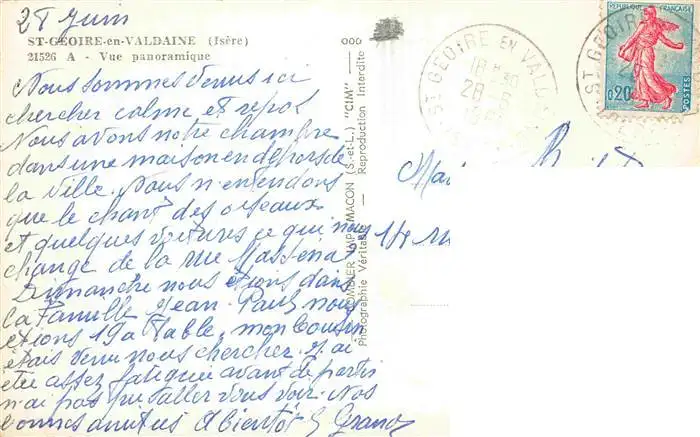 28 Juin
ST-GEOIRE-en-VALDAINE (Isère)
21526 A - Vue panoramique
Nous sommes venus ici
chercher calme et repos
Nous avons notre chambre
dans une maison en dehors de
la Ville. Nous n'entendons
que le chant des oiseaux
et quelques voitures ce qui nous
change de la rue Massena
Dimanche nous étions dans
la Famille Jean Paul nous
étions 19 a Table, mon Cousin
était venu nous chercher. J'ai
été assez fatiguée avant de partir
n'ai pas pu aller vous voir. Nos
bonnes amitiés A bientôt
COMBIER IMP. MACON (S.-et-L.) "CIM"
Photographie Véritable - Reproduction Interdite
ST GEOIRE EN VALD
18 H 30
28-6
REPUBLIQUE FRANÇAISE
0,20
POSTES
ST GEOIR